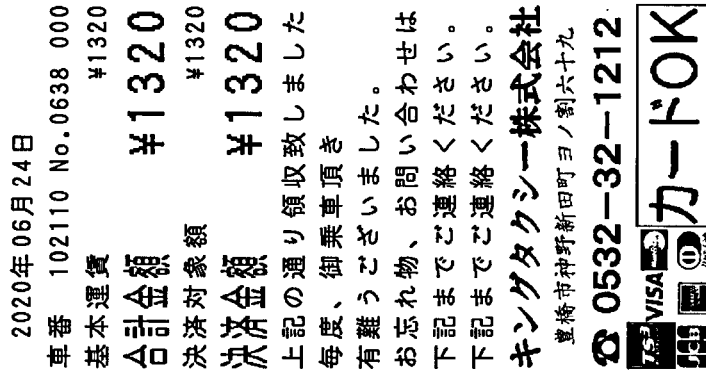 2020年06月24日
車番 102110 No.0638 000
基本運賃 ¥1320
合計金額 ¥1320
決済対象額 ¥1320
決済金額 ¥1320
上記の通り領収致しました
毎度、御乗車頂き
有難うございました。
お忘れ物、お問い合わせは
下記までご連絡ください。
下記までご連絡ください。
キングタクシー株式会社
豊橋市神野新田町ヨノ割六十九
☎ 0532-32-1212
VISA
JCB
カードOK